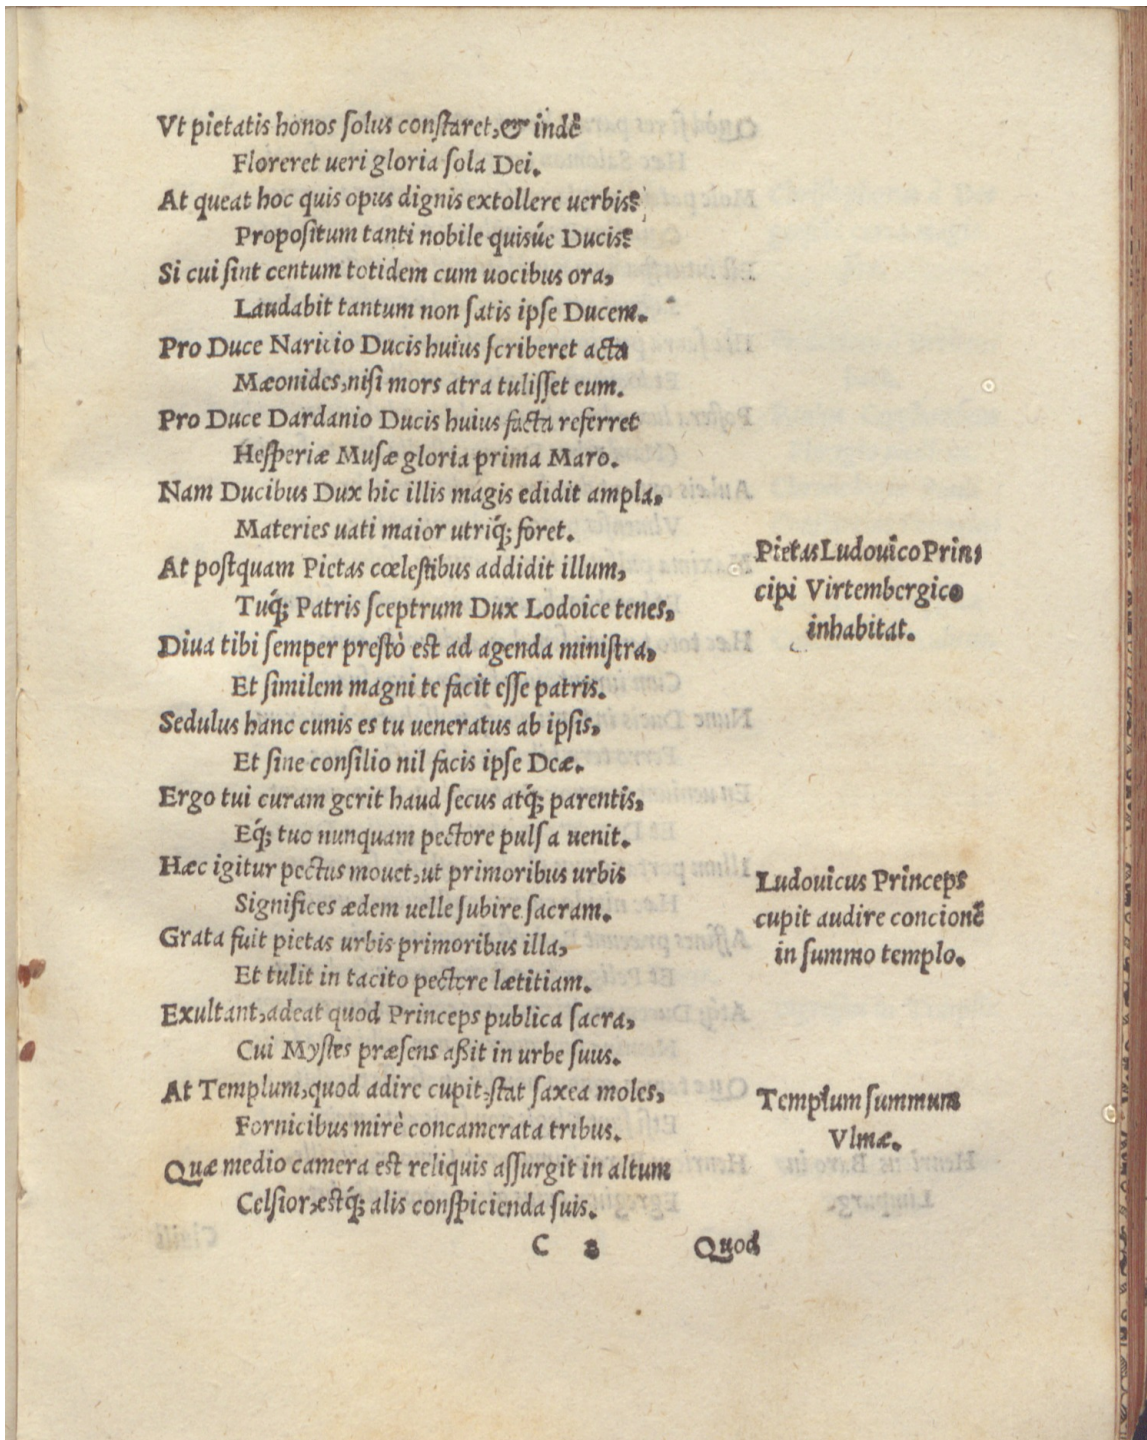 Vt pietatis honos solus constaret, & indè
Floreret ueri gloria sola Dei.
At queat hoc quis opus dignis extollere uerbis?
Propositum tanti nobile quisúe Ducis?
Si cui sint centum totidem cum uocibus ora,
Laudabit tantum non satis ipse Ducem.
Pro Duce Naricio Ducis huius scriberet acta
Mæonides, nisi mors atra tulisset eum.
Pro Duce Dardanio Ducis huius facta referret
Hesperiæ Musæ gloria prima Maro.
Nam Ducibus Dux hic illis magis edidit ampla,
Materies uati maior utriq́; foret.
At postquam Pietas cœlestibus addidit illum,
Tuq́; Patris sceptrum Dux Lodoice tenes,
Pietas Ludouico Prin,
cipi Virtembergico
inhabitat.
Diua tibi semper prestò est ad agenda ministra,
Et similem magni te facit esse patris.
Sedulus hanc cunis es tu ueneratus ab ipsis,
Et sine consilio nil facis ipse Deæ.
Ergo tui curam gerit haud secus atq́; parentis,
Eq́; tuo nunquam pectore pulsa uenit.
Hæc igitur pectus mouet, ut primoribus urbis
Significes ædem uelle subire sacram.
Ludouicus Princeps
cupit audire concionẽ
in summo templo.
Grata fuit pietas urbis primoribus illa,
Et tulit in tacito pectore lætitiam.
Exultant, adeat quod Princeps publica sacra,
Cui Mystes præsens aßit in urbe suus.
At Templum, quod adire cupit, stat saxea moles,
Fornicibus mirè concamerata tribus.
Templum summum
Vlmæ.
Quæ medio camera est reliquis assurgit in altum
Celsior, estq́; alis conspicienda suis.
C 2 Quod